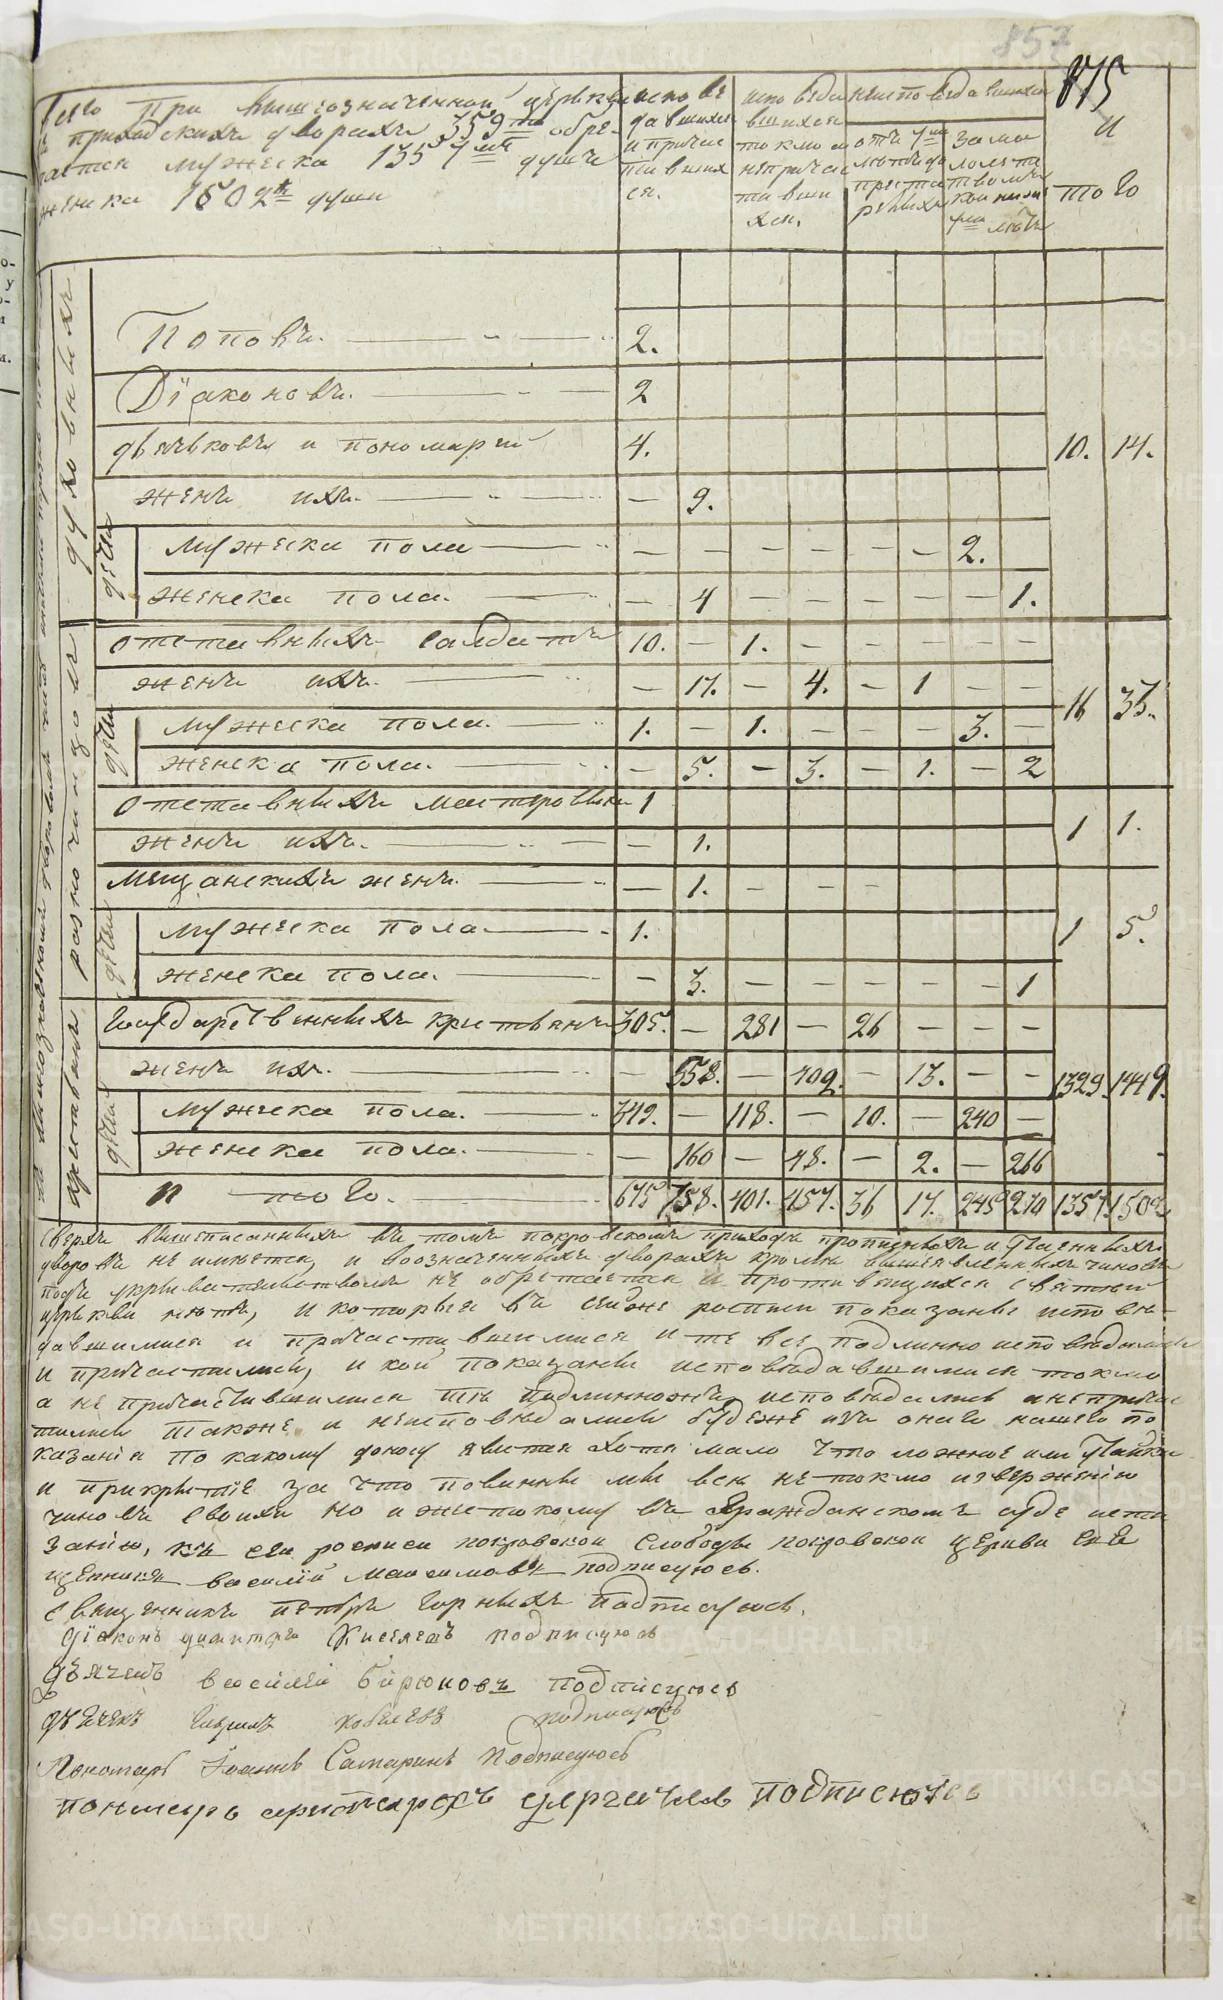 857
875
Всего при вышеозначенной церкви
в приходскихъ дворахъ 359ти обре-
тается мужеска 1357мъ душъ
женска 1502ѣ души
исповѣ
давшихся
и причас
тивших
ся.
исповѣда
вшихся
токмо а
непричас
тивши
хся.
неисповѣдавшихся
отъ 7ми
лѣтъ до
преста
релыхъ
за ма
лолѣт
ствомъ
кои ниже
7ми лѣтъ
И
того
духовныхъ
Поповъ. 2.
Дїаконовъ. 2
дьячьковъ и пономарей 4. 10. 14.
женъ ихъ. — 9.
дѣти
мужеска пола — — — — — — 2.
женска пола. — 4 — — — — — 1.
разночинцовъ
отставныхъ салдатъ 10. — 1. — — — — —
женъ ихъ. — 17. — 4. — 1 — — 16 33.
дѣти
мужеска пола. 1. — 1. — — — 3. —
женска пола. — 5. — 3. — 1. — 2
отставныхъ мастеровыхъ 1
женъ ихъ. — 1. 1 1.
мещанскихъ женъ. — 1. — — —
дѣти
мужеска пола 1. 1 5.
женска пола. — 3. — — — — — 1
крестьянъ
Государственныхъ крестьянъ 305. — 281 — 26 — — —
женъ ихъ. — 558. — 402. — 13. — — 1329. 1449.
дѣти
мужеска пола. 349. — 118. — 10. — 240 —
женска пола. — 160 — 48. — 2. — 266
И того. 675 758. 401. 457. 36 17. 245 270 1357. 1502
Сверхъ вышеписанныхъ въ томъ покровскомъ приходе прописныхъ и утаенныхъ
дворовъ не имѣется, и воозначенныхъ дворахъ кроме вышеявленныхъ чиновъ
подъ укрывательствомъ не обретается и противящихся святый
церкви нѣтъ, и которыя въ сей же росписи показаны исповѣ-
давшимися и причастившимися и те все подлинно исповѣдались
и причастились, и кои показаны исповѣдавшимися токмо
а не причастившимися тѣ подлинножъ исповѣдались а непричас
тились также и неисповѣдались будеже изъ онаго нашего по
казанія по какому доносу явится хотя мало что ложное или утайка
и прикрытіе за что повинны мы все не токмо изверженію
чиновъ своихъ но и жестокому въ гражданскомъ суде истя
занію, къ сей росписи покровской слободы покровской церкви свя
щенникъ василій максимовъ подписуюсь.
священникъ петръ горныхъ подписуюсь.
дїаконъ димитрей Киселевъ подписуюсь
дьячекъ василей бирюковъ подписуюсь
дьячекъ подписуюсь
Пономарь Іоаннъ Самаринъ подписуюсь
пономарь подписуюсь